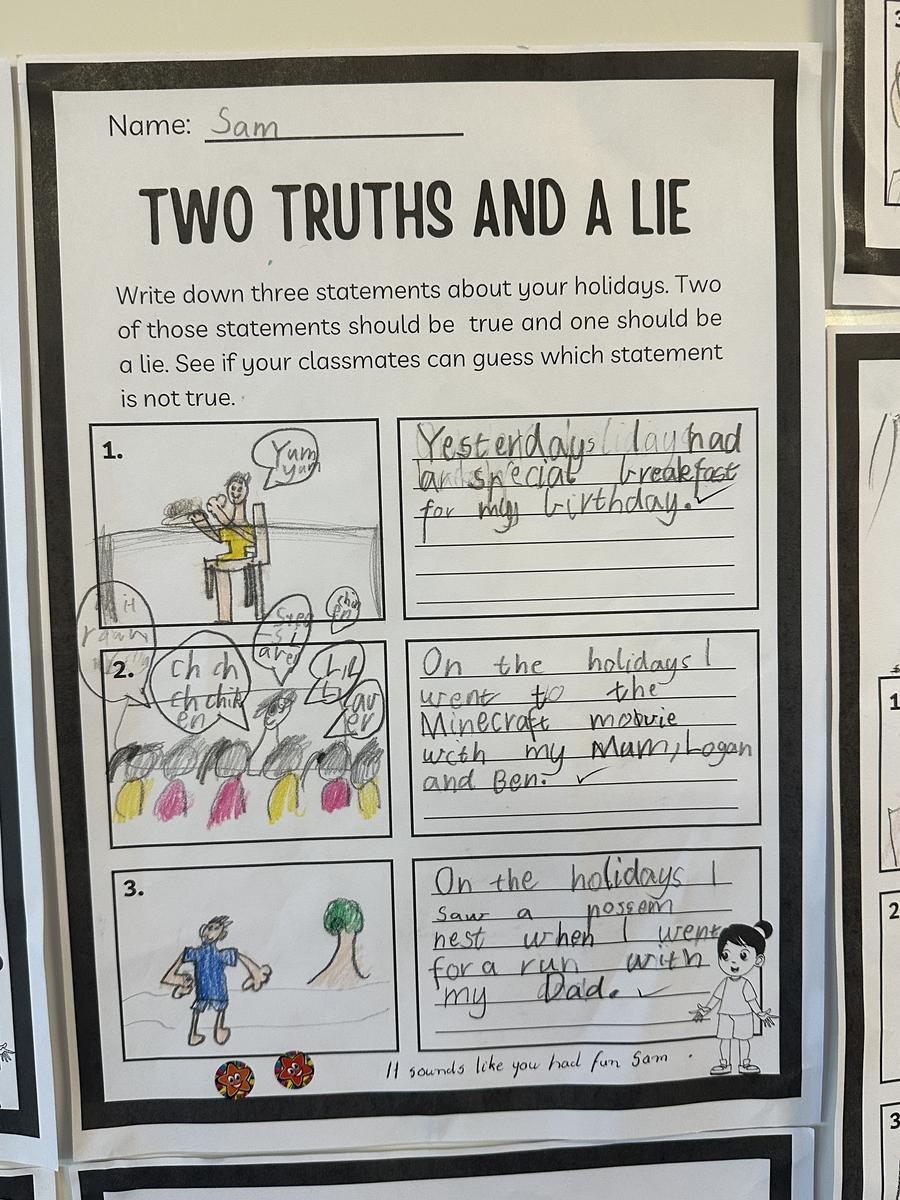 Name: Sam
TWO TRUTHS AND A LIE
Write down three statements about your holidays. Two
of those statements should be true and one should be
a lie. See if your classmates can guess which statement
is not true.
1.
Yum
yum
Yesterday had
an special breakfast
for my birthday.
2.
ch ch
ch chik
en
On the holidays I
went to the
Minecraft mobvie
with my Mum, Logan
and Ben.
3.
On the holidays I
saw a possem
nest when I went
for a run with
my Dad.
It sounds like you had fun Sam .